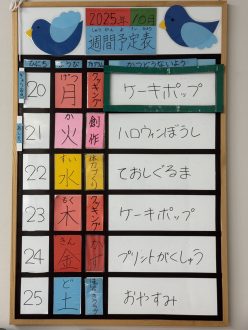 2025年 10月
しゅうかんよていひょう
週間予定表
ひにち ようび かつどう かつどうないよう
20 げつ 月 クッキング ケーキポップ
21 か 火 創作 ハロウィンぼうし
22 すい 水 体づくり ておしぐるま
23 もく 木 クッキング ケーキポップ
24 きん 金 プリントがくしゅう
25 ど 土 おやすみ